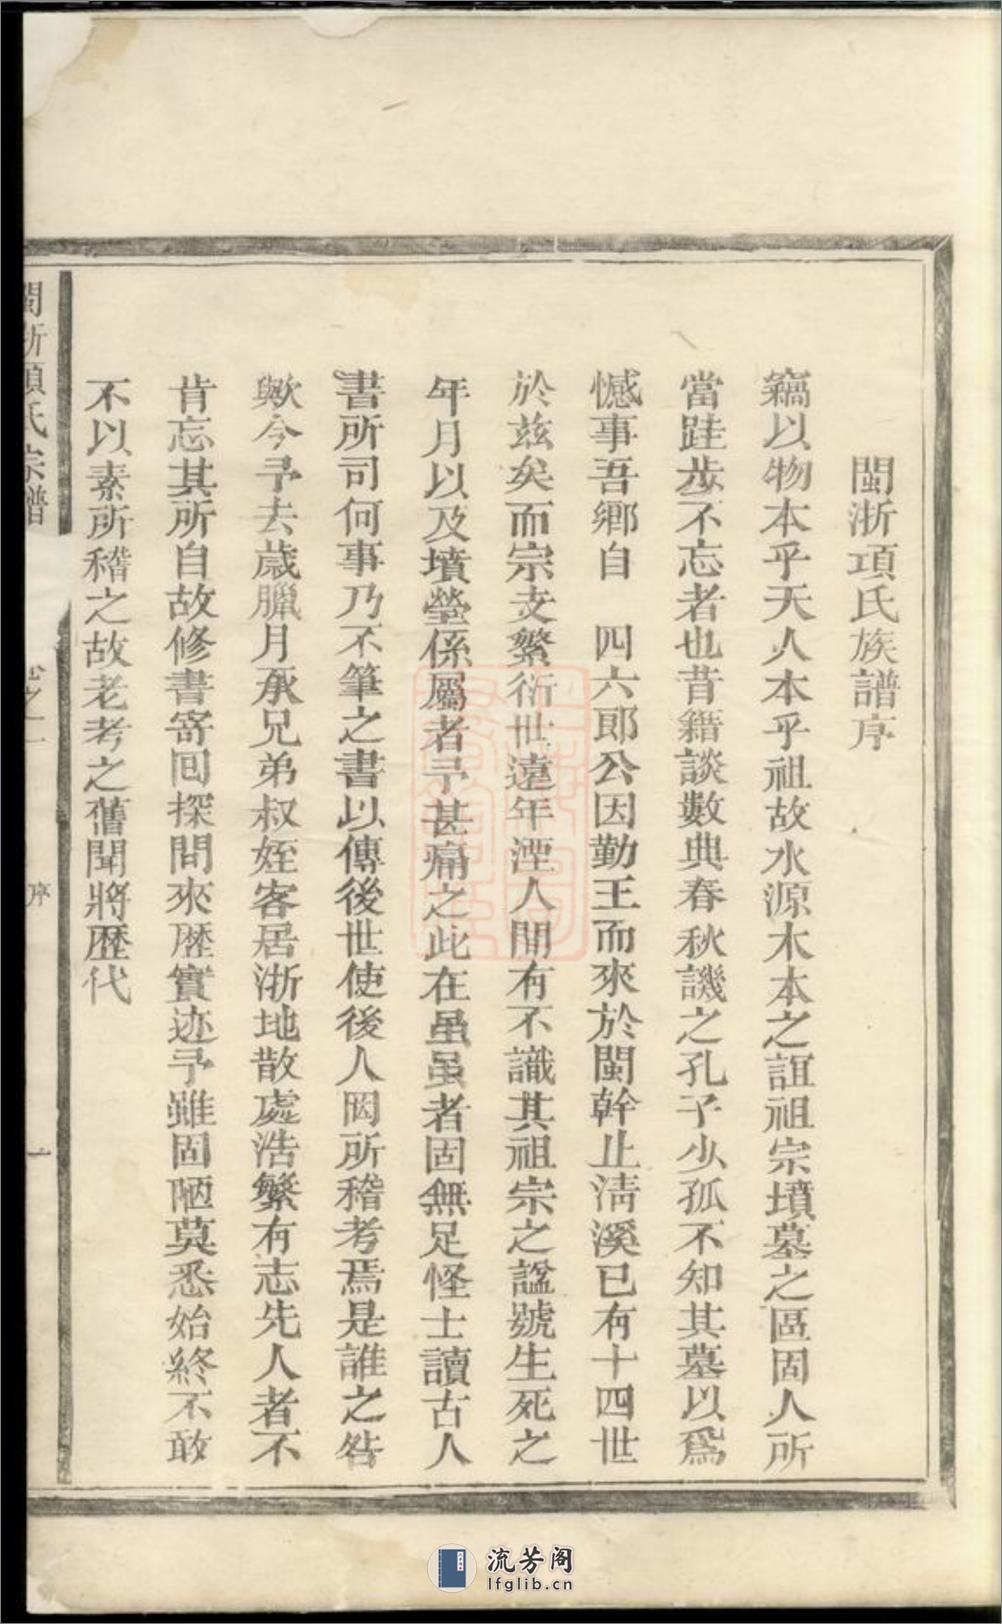 閩浙項氏族譜序
竊以物本乎天人本乎祖故水源木本之誼祖宗墳墓之區固人所
當跬步不忘者也昔籍談數典春秋譏之孔子少孤不知其墓以爲
憾事吾鄉自 四六郎公因勤王而來於閩幹止淸溪已有十四世
於玆矣而宗支繁衍世遠年湮人間有不識其祖宗之諡號生死之
年月以及墳塋係屬者予甚痛之此在蚩蚩者固無足怪士讀古人
書所司何事乃不筆之書以傳後世使後人罔所稽考焉是誰之咎
歟今予去歲臘月承兄弟叔姪客居浙地散處浩繁有志先人者不
肯忘其所自故修書寄囘探問來歷實迹予雖固陋莫悉始終不敢
不以素所稽之故老考之舊聞將歷代
閩浙項氏宗譜
卷之一
序
一
流芳阁
lfglib.cn